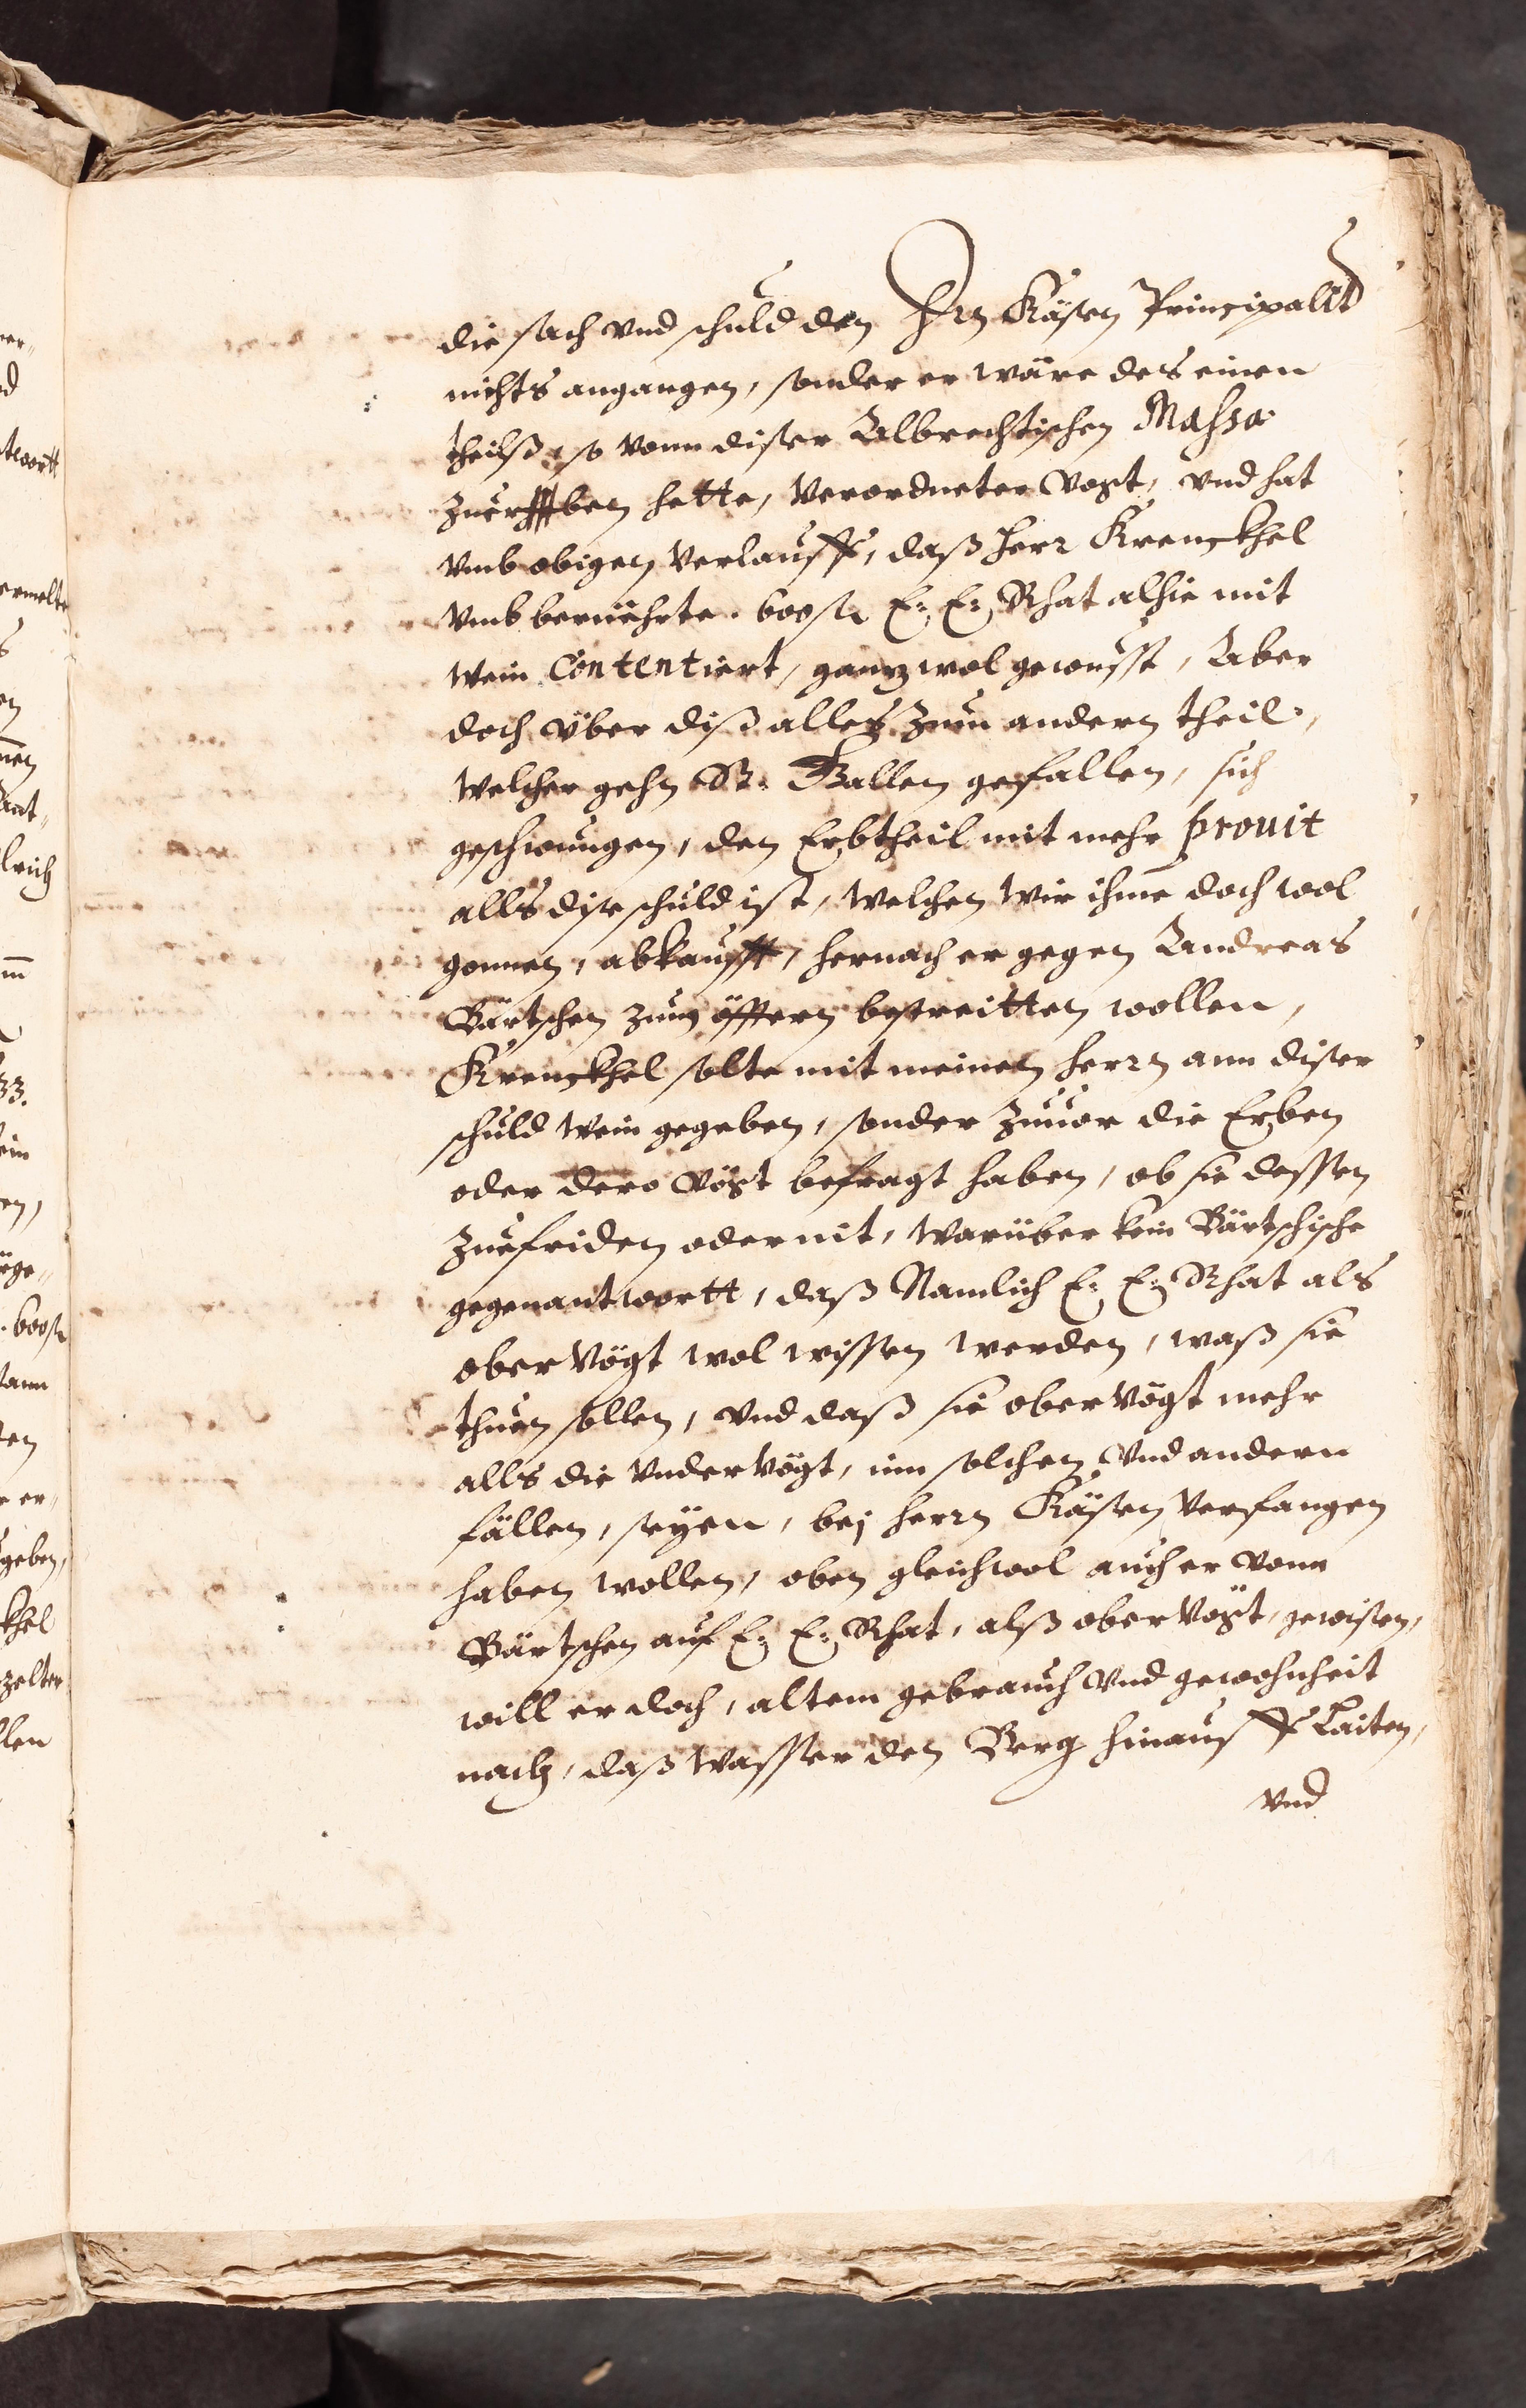 die sach vnd schuld den Hrn Käsen Principalit
nichts angangen, sonder er wäre des einen
theilß so vonn diser Albrechtischen Massa
zuer##ben hette, verordneter Vogt, vnd hat
vmb obigen verlauff, daß herr Krenckhel
vmb berüehrte. 600 fl. E: E: Rhat alhie mit
wein Contentiert, gantz wol gewusst, Aber
doch über diß alles zum andern theil,
welcher gehn St. Gallen gefallen, sich
geschwungen, den Erbtheil mit mehr provit
alls dise schuld ist, welchen wir ihme doch wol
gonnen, abkaufft, hernach er gegen Andreas
Bärtschen zum öfftern bestreitten wollen,
Krenckhel solte mit meinen herrn ann diser
schuld wein gegeben, sonder zuuor die Erben
oder dero Vögt befragt haben, ob sie dessen
zuefriden oder nit, warüber kein Bärtschische
gegenantwortt, daß Namlich E: E: Rhat als
ober Vögt wol wissen werden, waß sie
thuen sollen, vnd daß sie ober Vögt mehr
alls die vnder Vögt, inn solchen vnd andern
fällen, seyen, bej herrn Käsen verfangen
haben wollen, oben gleichwol auch er vonn
Bärtschen auf E: E: Rhat, alß ober Vögt, gewisen,
will er doch, altem gebrauch vnd gewohnheit
nach, daß wasser den Berg hinauff Laiten,
vnd